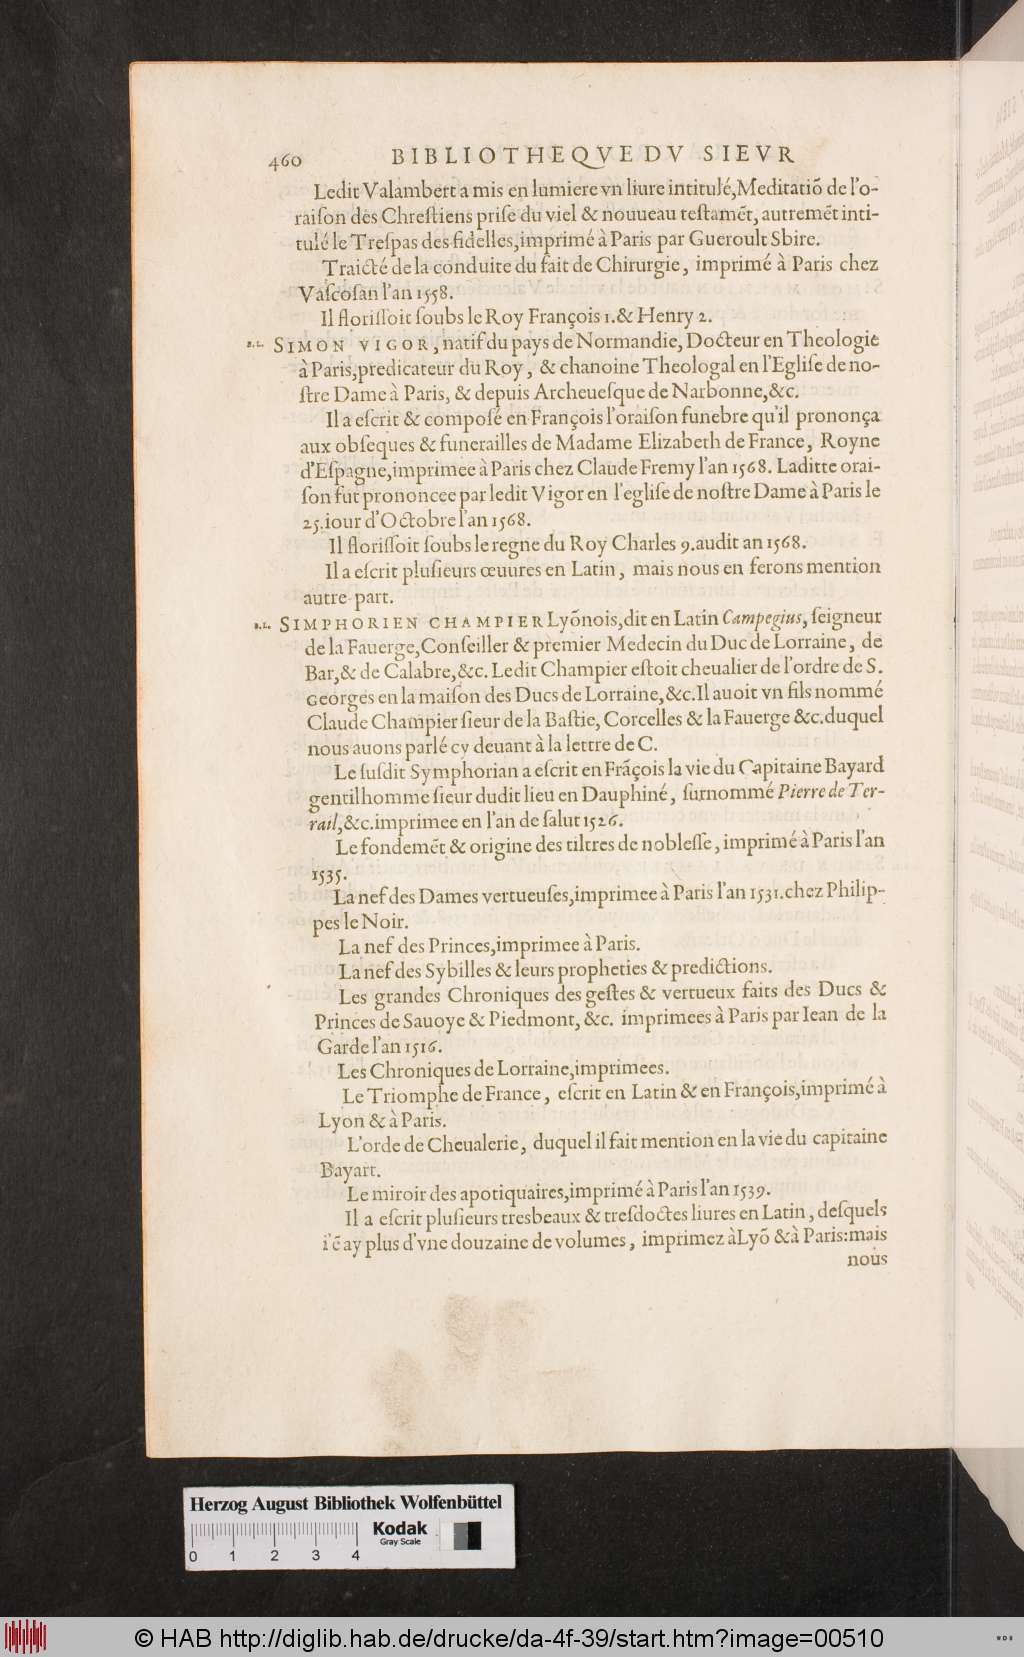 460 BIBLIOTHEQVE DV SIEVR
Ledit Valambert a mis en lumiere vn liure intitulé,Meditatiõ de l'o-
raiſon des Chreſtiens priſe du viel & nouueau teſtamẽt, autremẽt inti-
tulé le Treſpas des fidelles,imprimé à Paris par Gueroult Sbire.
Traicté de la conduite du fait de Chirurgie, imprimé à Paris chez
Vaſcoſan l'an 1558.
Il floriſſoit ſoubs le Roy François 1.& Henry 2.
B.L. SIMON VIGOR, natif du pays de Normandie, Docteur en Theologie
à Paris,predicateur du Roy, & chanoine Theologal en l'Egliſe de no-
ſtre Dame à Paris, & depuis Archeueſque de Narbonne,&c.
Il a eſcrit & compoſé en François l'oraiſon funebre qu'il prononça
aux obſeques & funerailles de Madame Elizabeth de France, Royne
d'Eſpagne,imprimee à Paris chez Claude Fremy l'an 1568. Laditte orai-
ſon fut prononcee par ledit Vigor en l'egliſe de noſtre Dame à Paris le
25.iour d'Octobre l'an 1568.
Il floriſſoit ſoubs le regne du Roy Charles 9.audit an 1568.
Il a eſcrit pluſieurs œuures en Latin, mais nous en ferons mention
autre part.
B.L. SIMPHORIEN CHAMPIER Lyõnois,dit en Latin Campegius, ſeigneur
de la Fauerge,Conſeiller & premier Medecin du Duc de Lorraine, de
Bar,& de Calabre,&c. Ledit Champier eſtoit cheualier de l'ordre de S.
Georges en la maiſon des Ducs de Lorraine,&c.Il auoit vn fils nommé
Claude Champier ſieur de la Baſtie, Corcelles & la Fauerge &c.duquel
nous auons parlé cy deuant à la lettre de C.
Le ſuſdit Symphorian a eſcrit en Frãçois la vie du Capitaine Bayard
gentilhomme ſieur dudit lieu en Dauphiné, ſurnommé Pierre de Ter-
rail,&c.imprimee en l'an de ſalut 1526.
Le fondemẽt & origine des tiltres de nobleſſe, imprimé à Paris l'an
1535.
La nef des Dames vertueuſes,imprimee à Paris l'an 1531.chez Philip-
pes le Noir.
La nef des Princes,imprimee à Paris.
La nef des Sybilles & leurs propheties & predictions.
Les grandes Chroniques des geſtes & vertueux faits des Ducs &
Princes de Sauoye & Piedmont, &c. imprimees à Paris par Iean de la
Garde l'an 1516.
Les Chroniques de Lorraine,imprimees.
Le Triomphe de France, eſcrit en Latin & en François,imprimé à
Lyon & à Paris.
L'orde de Cheualerie, duquel il fait mention en la vie du capitaine
Bayart.
Le miroir des apotiquaires,imprimé à Paris l'an 1539.
Il a eſcrit pluſieurs tresbeaux & treſdoctes liures en Latin, deſquels
i'ẽ ay plus d'vne douzaine de volumes, imprimez à Lyõ & à Paris:mais
nous
Herzog August Bibliothek Wolfenbüttel
Kodak
Gray Scale
0 1 2 3 4
© HAB http://diglib.hab.de/drucke/da-4f-39/start.htm?image=00510